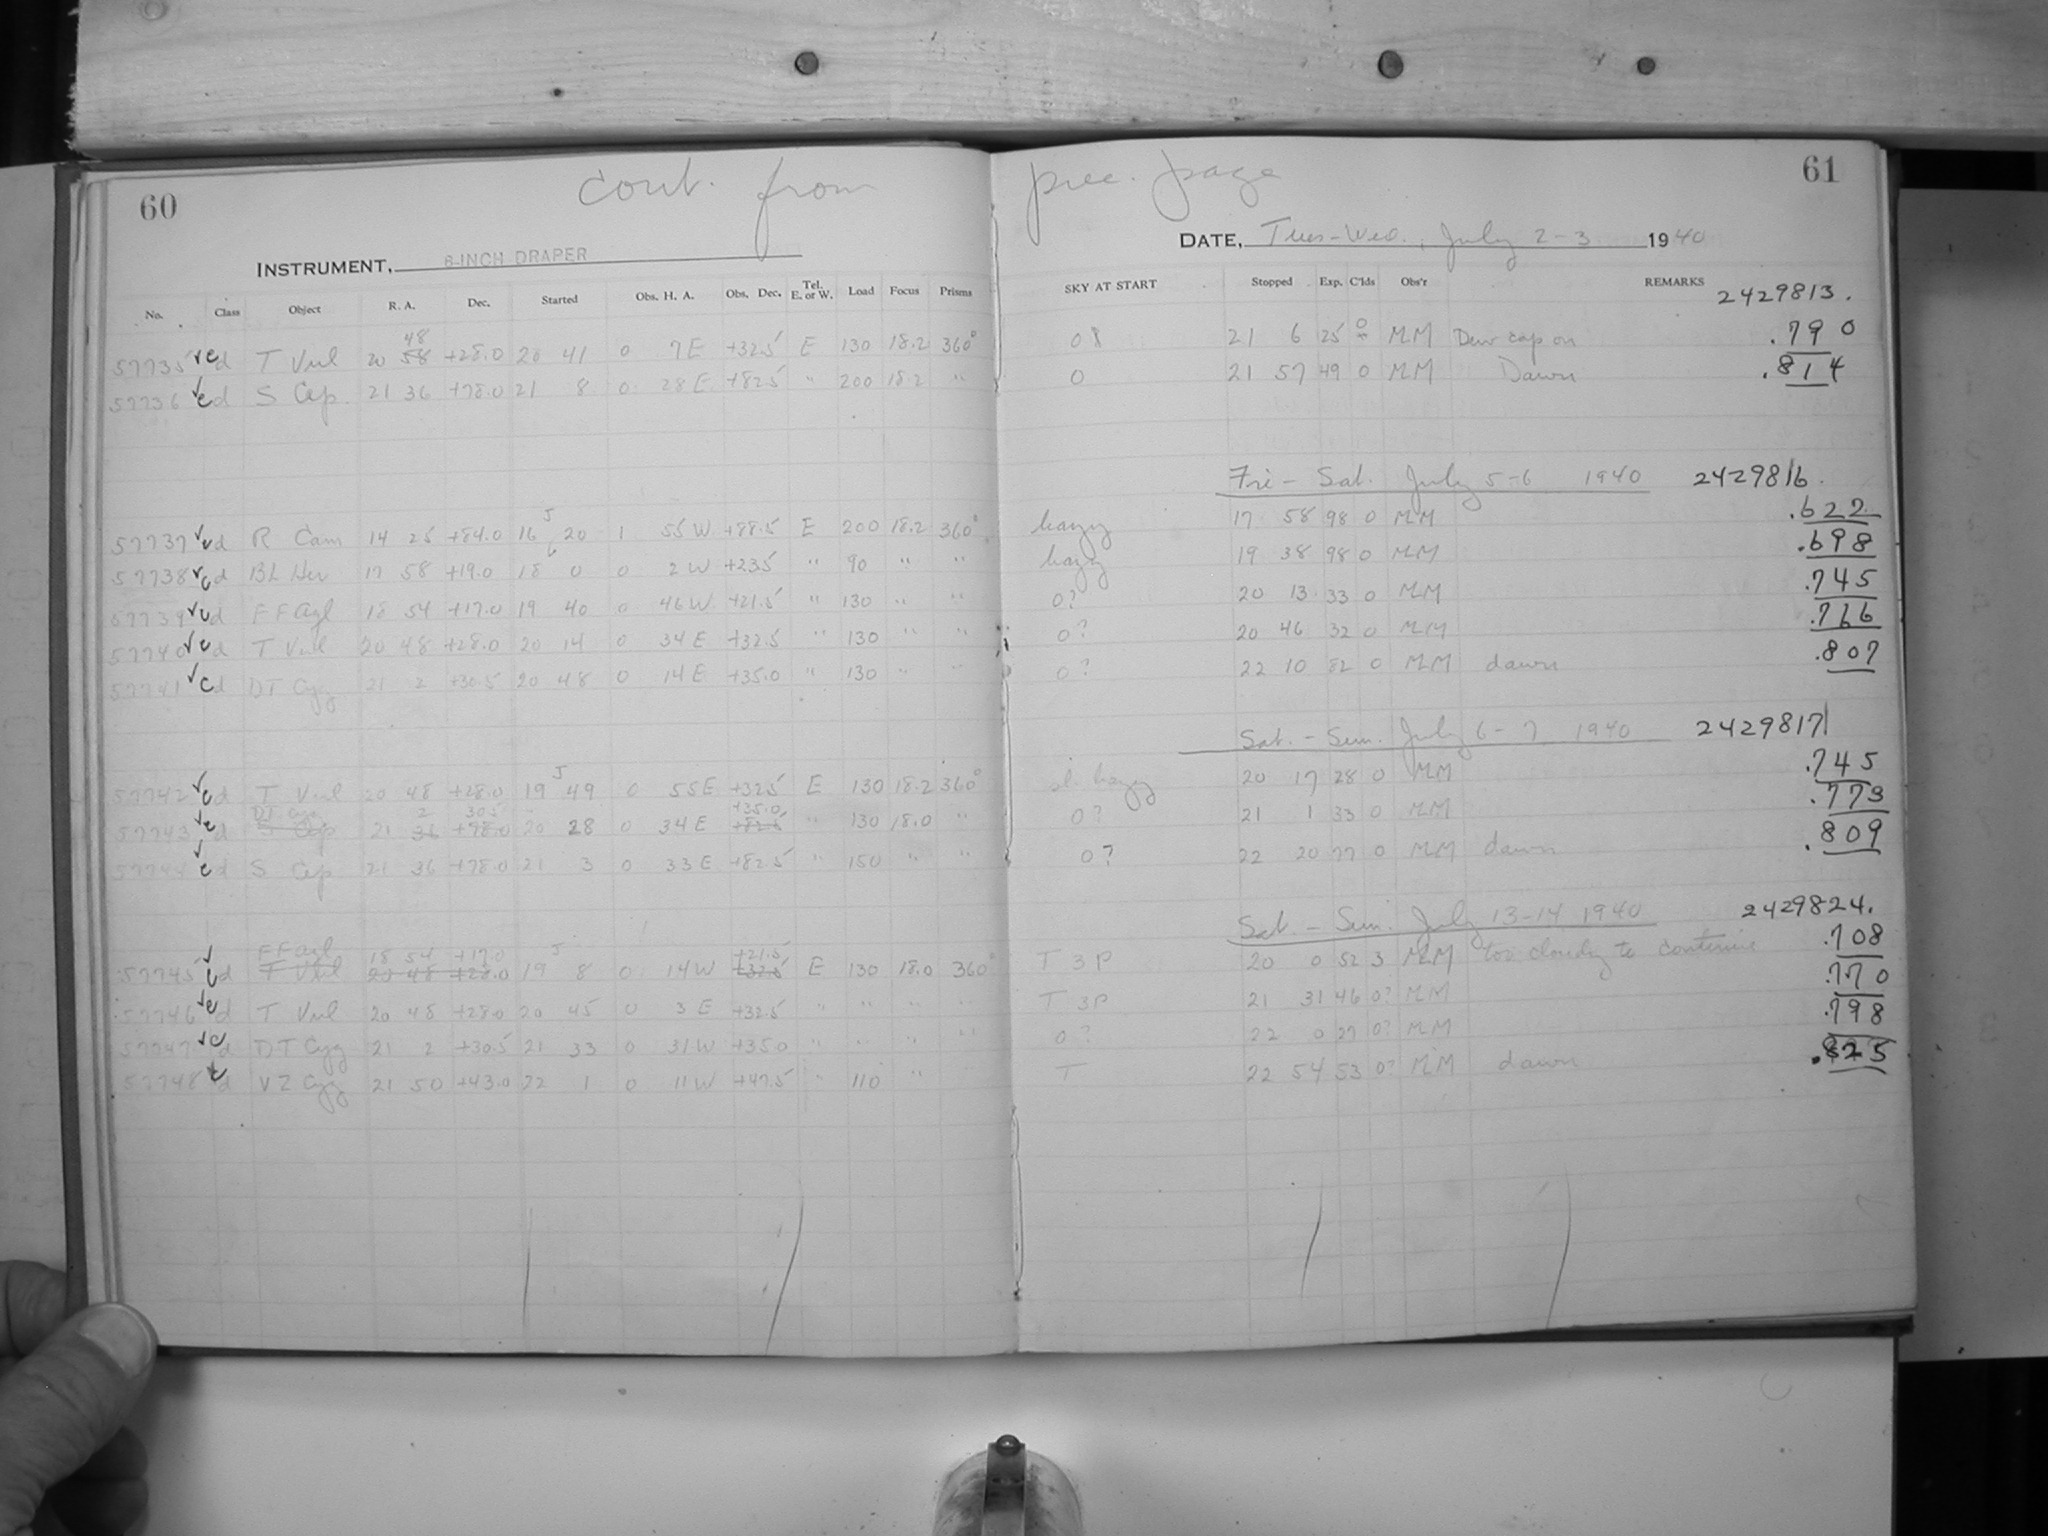 60 cont. from prec. page 61
INSTRUMENT, 8-INCH DRAPER DATE, Tues-Wed., July 2-3 1940
No. Class Object R. A. Dec. Started Obs. H. A. Obs. Dec. Tel. E. or W. Load Focus Prisms SKY AT START Stopped Exp. C'lds Obs'r REMARKS 2429813.
48
57735 ✓cd T Vul 20 58 +28.0 20 41 0 7E +32.5 E 130 18.2 360° 21 6 25 0 MM Dew cap on .790
57736 ✓cd S Cep 21 36 +78.0 21 8 0 28E +82.5 " 200 18.2 " 0 21 57 49 0 MM Dawn .814
Fri - Sat. July 5-6 1940 2429816.
57737 ✓cd R Cam 14 25 +84.0 16 J 20 1 55W +88.5 E 200 18.2 360° hazy 17 58 98 0 MM .622
57738 ✓cd BL Her 17 58 +19.0 18 0 0 2W +23.5 " 90 " " hazy 19 38 98 0 MM .698
57739 ✓cd FF Aql 18 54 +17.0 19 40 0 46W +21.5 " 130 " " 0? 20 13 33 0 MM .745
57740 ✓cd T Vul 20 48 +28.0 20 14 0 34E +32.5 " 130 " " 0? 20 46 32 0 MM .766
57741 ✓cd DT Cyg 21 2 +30.5 20 48 0 14E +35.0 " 130 " " 0? 22 10 82 0 MM dawn .807
Sat. - Sun. July 6-7 1940 2429817
57742 ✓cd T Vul 20 48 +28.0 19 J 49 0 55E +32.5 E 130 18.2 360° sl. hazy 20 17 28 0 MM .745
DT Cyg 2 30.5 +35.0
57743 ✓cd S Cep 21 36 +78.0 20 28 0 34E +82.5 " 130 18.0 " 0? 21 1 33 0 MM .773
57744 ✓cd S Cep 21 36 +78.0 21 3 0 33E +82.5 " 150 " " 0? 22 20 77 0 MM dawn .809
Sat. - Sun. July 13-14 1940 2429824.
FF Aql 18 54 +17.0 +21.5
57745 ✓cd T Vul 20 48 +28.0 19 J 8 0 14W +32.5 E 130 18.0 360° T 3P 20 0 52 3 MM too cloudy to continue .708
57746 ✓cd T Vul 20 48 +28.0 20 45 0 3E +32.5 " " " " T 3P 21 31 46 0? MM .770
57747 ✓cd DT Cyg 21 2 +30.5 21 33 0 31W +35.0 " " " " 0? 22 0 27 0? MM .798
57748 ✓cd VZ Cyg 21 50 +43.0 22 1 0 11W +47.5 " 110 " T 22 54 53 0? MM dawn .825